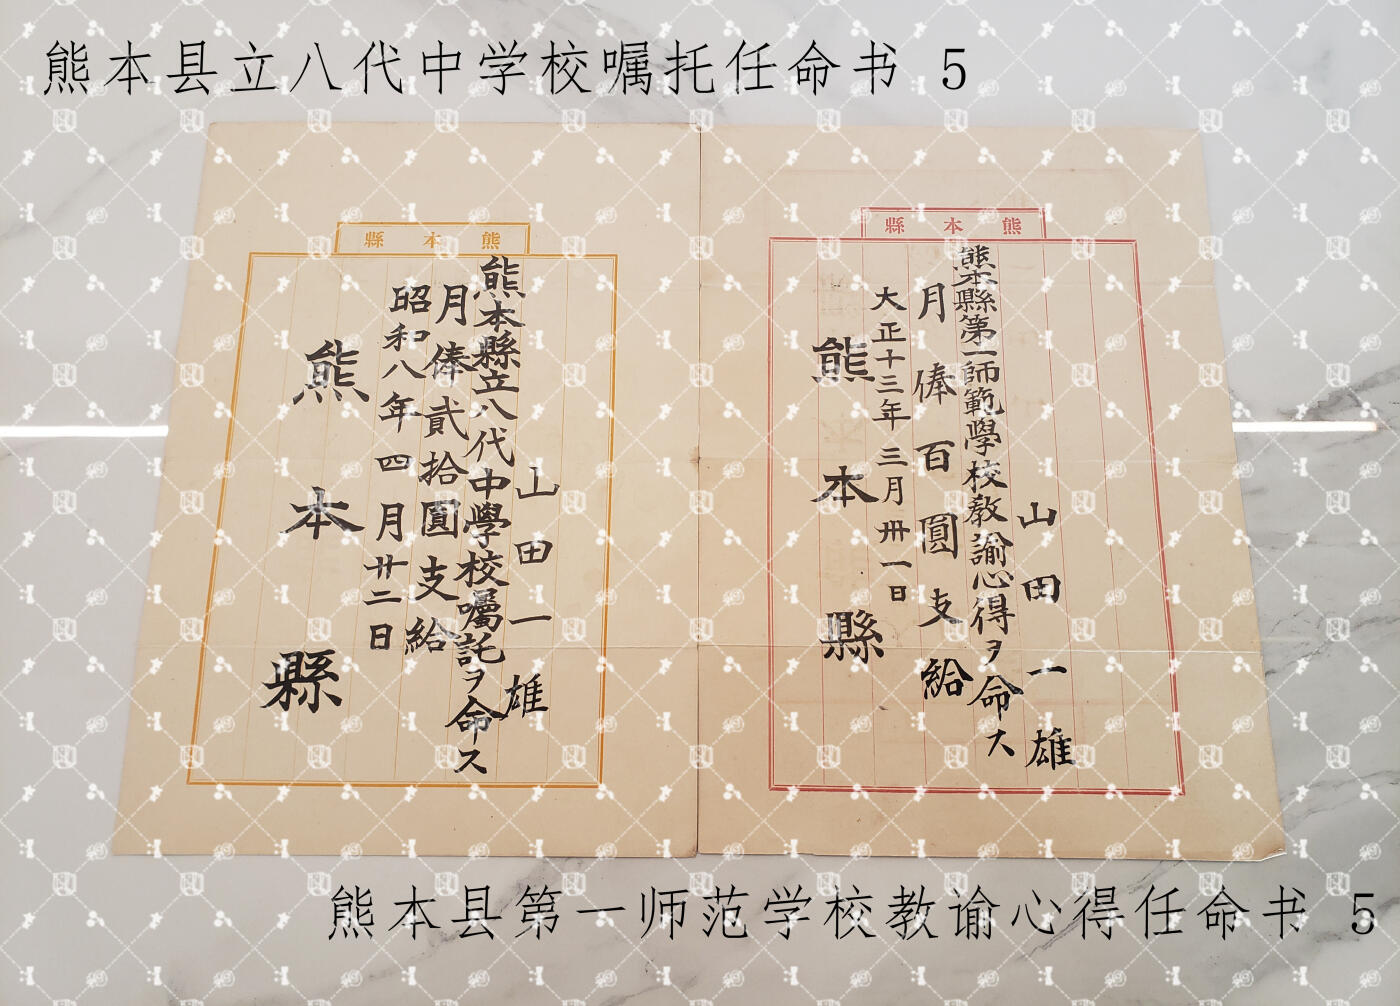 熊本县立八代中学校嘱托任命书 5
熊本縣
山田一雄
熊本縣立八代中學校囑託ヲ命ス
月俸貳拾圓支給
昭和八年四月廿二日
熊本縣
熊本縣
山田一雄
熊本縣第一師範學校教諭心得ヲ命ス
月俸百圓支給
大正十三年三月卅一日
熊本縣
熊本县第一师范学校教谕心得任命书 5